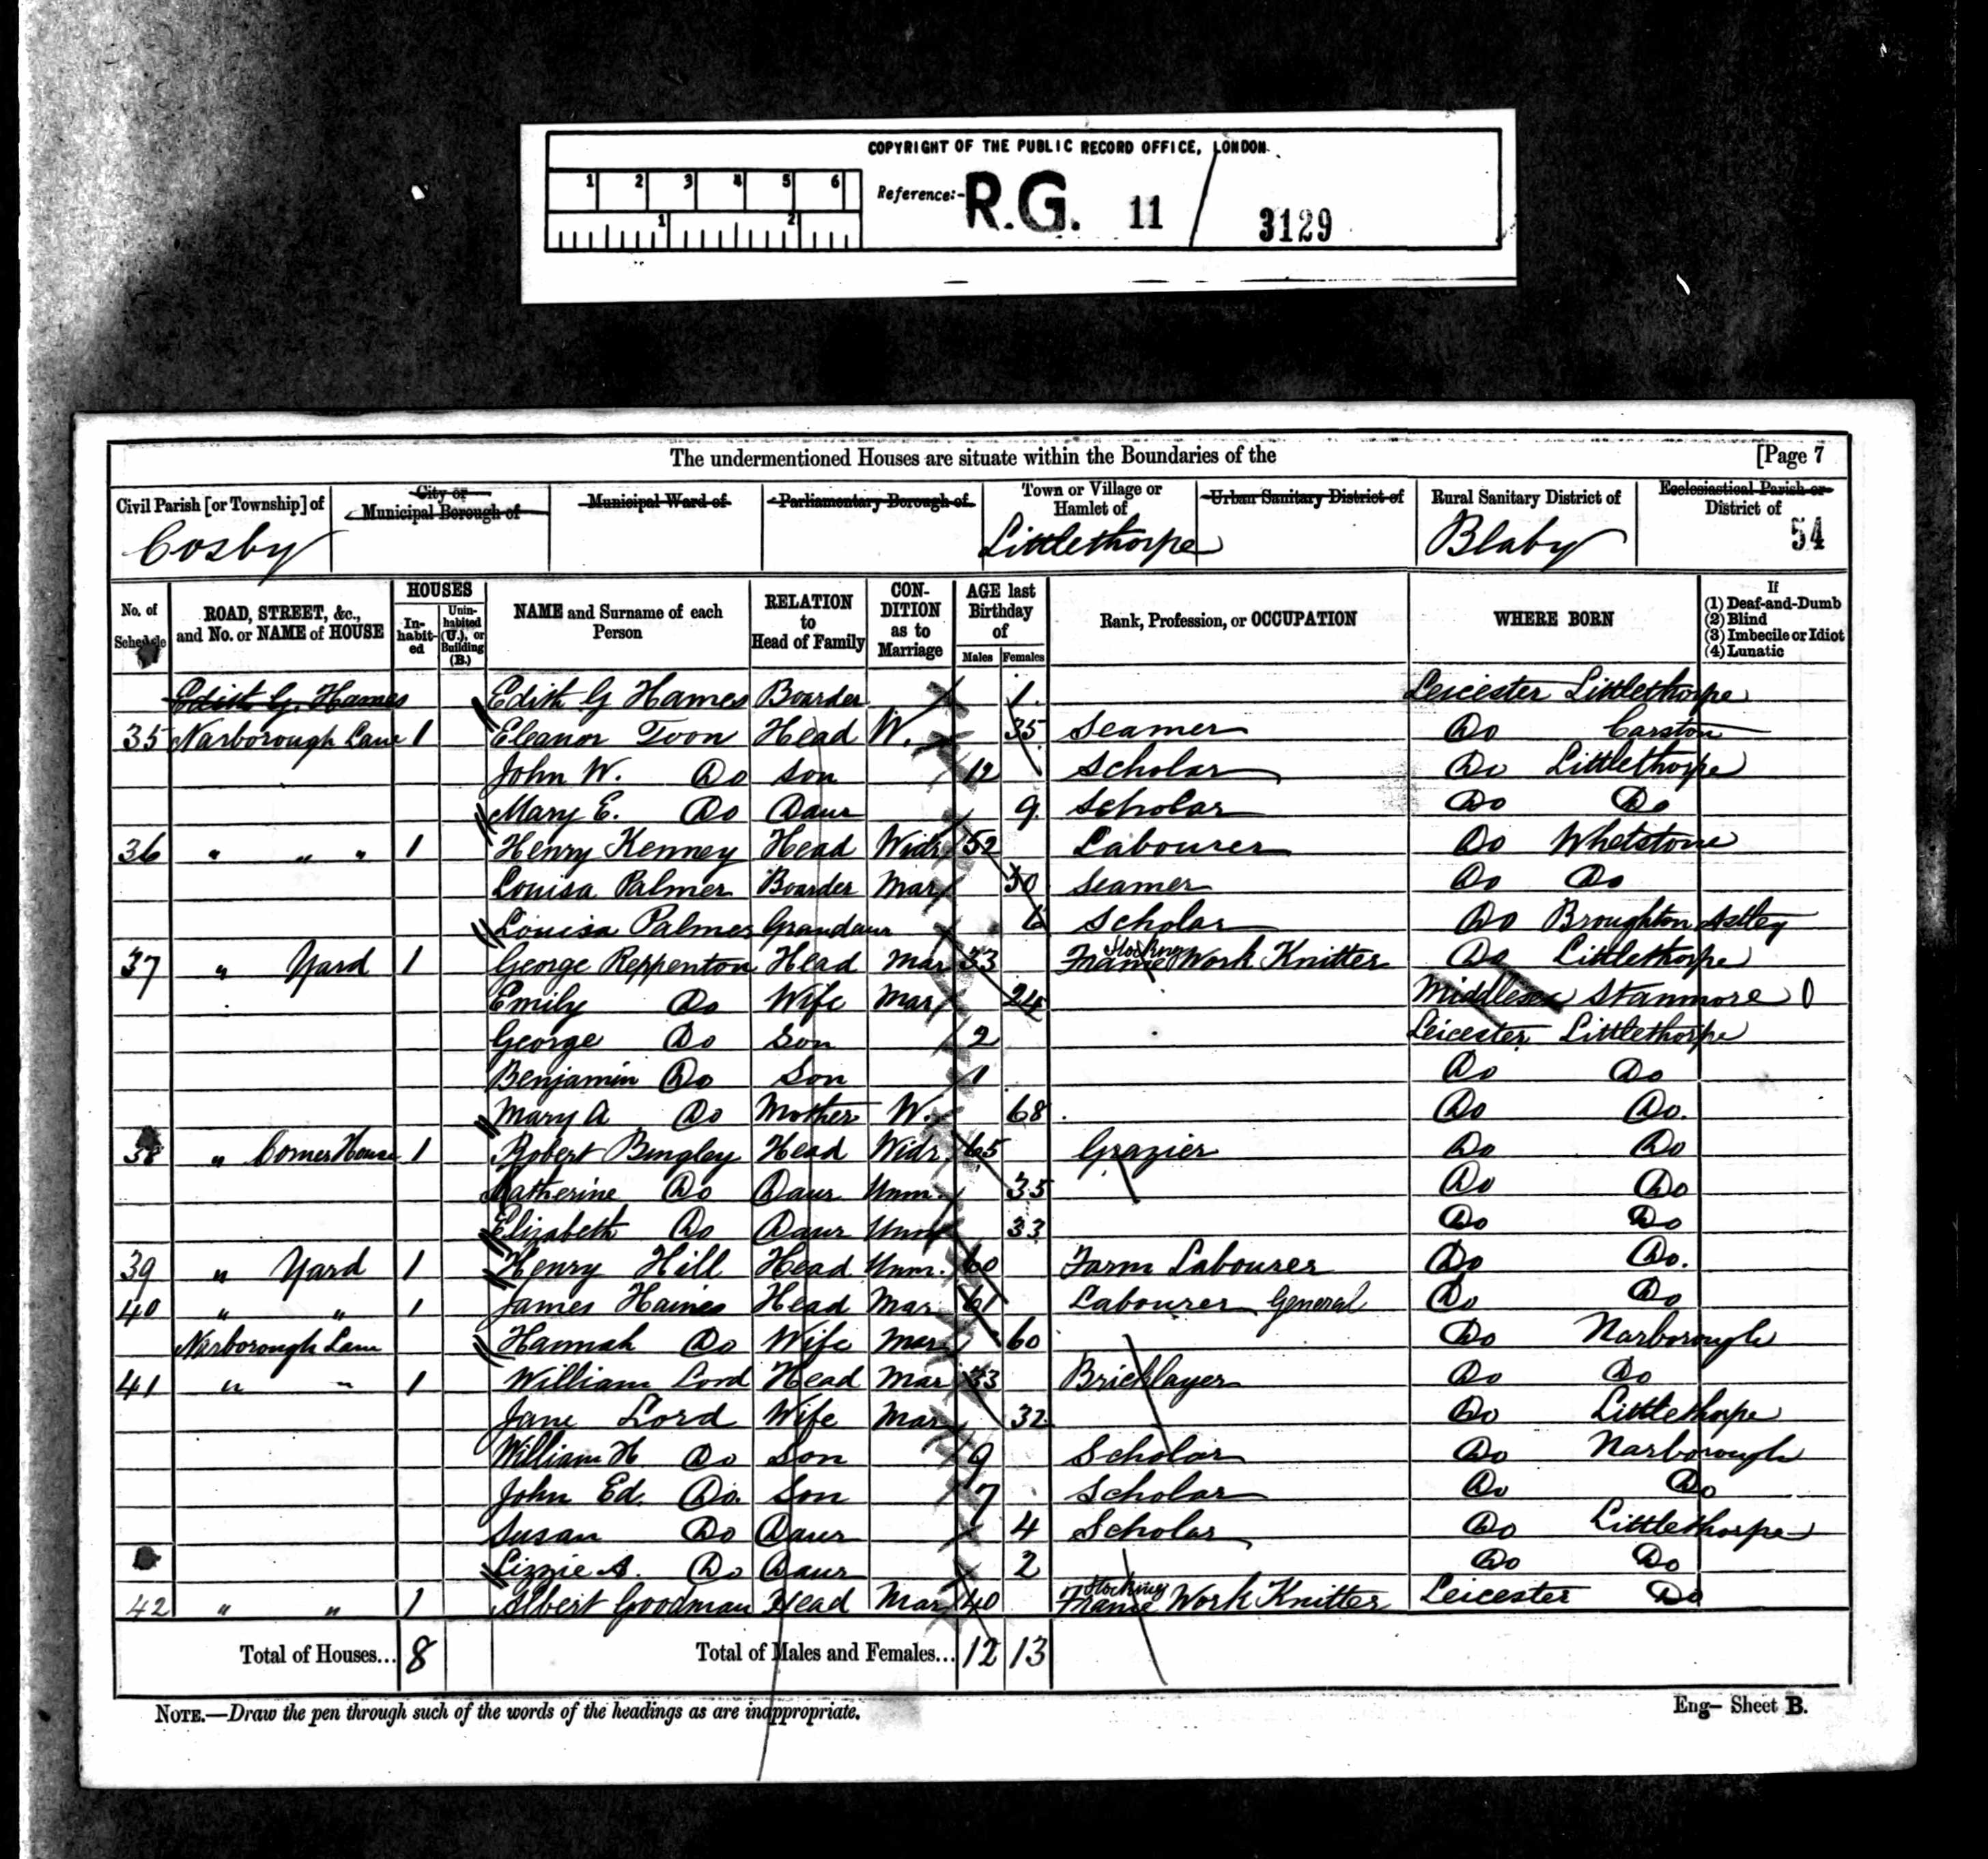 COPYRIGHT OF THE PUBLIC RECORD OFFICE, LONDON
1 2 3 4 5 6
1 2
Reference:- R.G. 11 / 3129
The undermentioned Houses are situate within the Boundaries of the [Page 7
Civil Parish [or Township] of Cosby
City or Municipal Borough of
Municipal Ward of
Parliamentary Borough of
Town or Village or Hamlet of Littlethorpe
Urban Sanitary District of
Rural Sanitary District of Blaby
Ecclesiastical Parish or District of 54
No. of Schedule
ROAD, STREET, &c., and No. or NAME of HOUSE
HOUSES
Inhabited
Uninhabited (U.), or Building (B.)
NAME and Surname of each Person
RELATION to Head of Family
CONDITION as to Marriage
AGE last Birthday of
Males Females
Rank, Profession, or OCCUPATION
WHERE BORN
If
(1) Deaf-and-Dumb
(2) Blind
(3) Imbecile or Idiot
(4) Lunatic
Edith G. Hames Edith G Hames Boarder 1 Leicester Littlethorpe
35 Narborough Lane 1 Eleanor Toon Head W. 35 Seamer Do Carston
John W. Do Son 12 Scholar Do Littlethorpe
Mary E. Do Daur 9 Scholar Do Do
36 " " " 1 Henry Kenney Head Widr 52 Labourer Do Whetstone
Louisa Palmer Boarder Mar 30 Seamer Do Do
Louisa Palmer Grandaur 6 Scholar Do Broughton Astley
37 " Yard 1 George Reppenton Head Mar 33 Frame Stocking Work Knitter Do Littlethorpe
Emily Do Wife Mar 24 Middlesex Stanmore 0
George Do Son 2 Leicester Littlethorpe
Benjamin Do Son 1 Do Do
Mary A Do Mother W. 68 Do Do.
38 " Corner House 1 Robert Bingley Head Widr. 65 Grazier Do Do
Katherine Do Daur Unm. 35 Do Do
Elizabeth Do Daur Unm 33 Do Do
39 " Yard 1 Henry Hill Head Unm. 60 Farm Labourer Do Do.
40 " " 1 James Haines Head Mar 61 Labourer General Do Do
Narborough Lane Hannah Do Wife Mar 60 Do Narborough
41 " " 1 William Lord Head Mar 33 Bricklayer Do Do
Jane Lord Wife Mar 32 Do Littlethorpe
William H. Do Son 9 Scholar Do Narborough
John Ed. Do. Son 7 Scholar Do Do
Susan Do Daur 4 Scholar Do Littlethorpe
Lizzie A. Do Daur 2 Do Do
42 " " 1 Albert Goodman Head Mar 40 Frame Stocking Work Knitter Leicester Do
Total of Houses... 8 Total of Males and Females... 12 13
NOTE.—Draw the pen through such of the words of the headings as are inappropriate.
Eng— Sheet B.